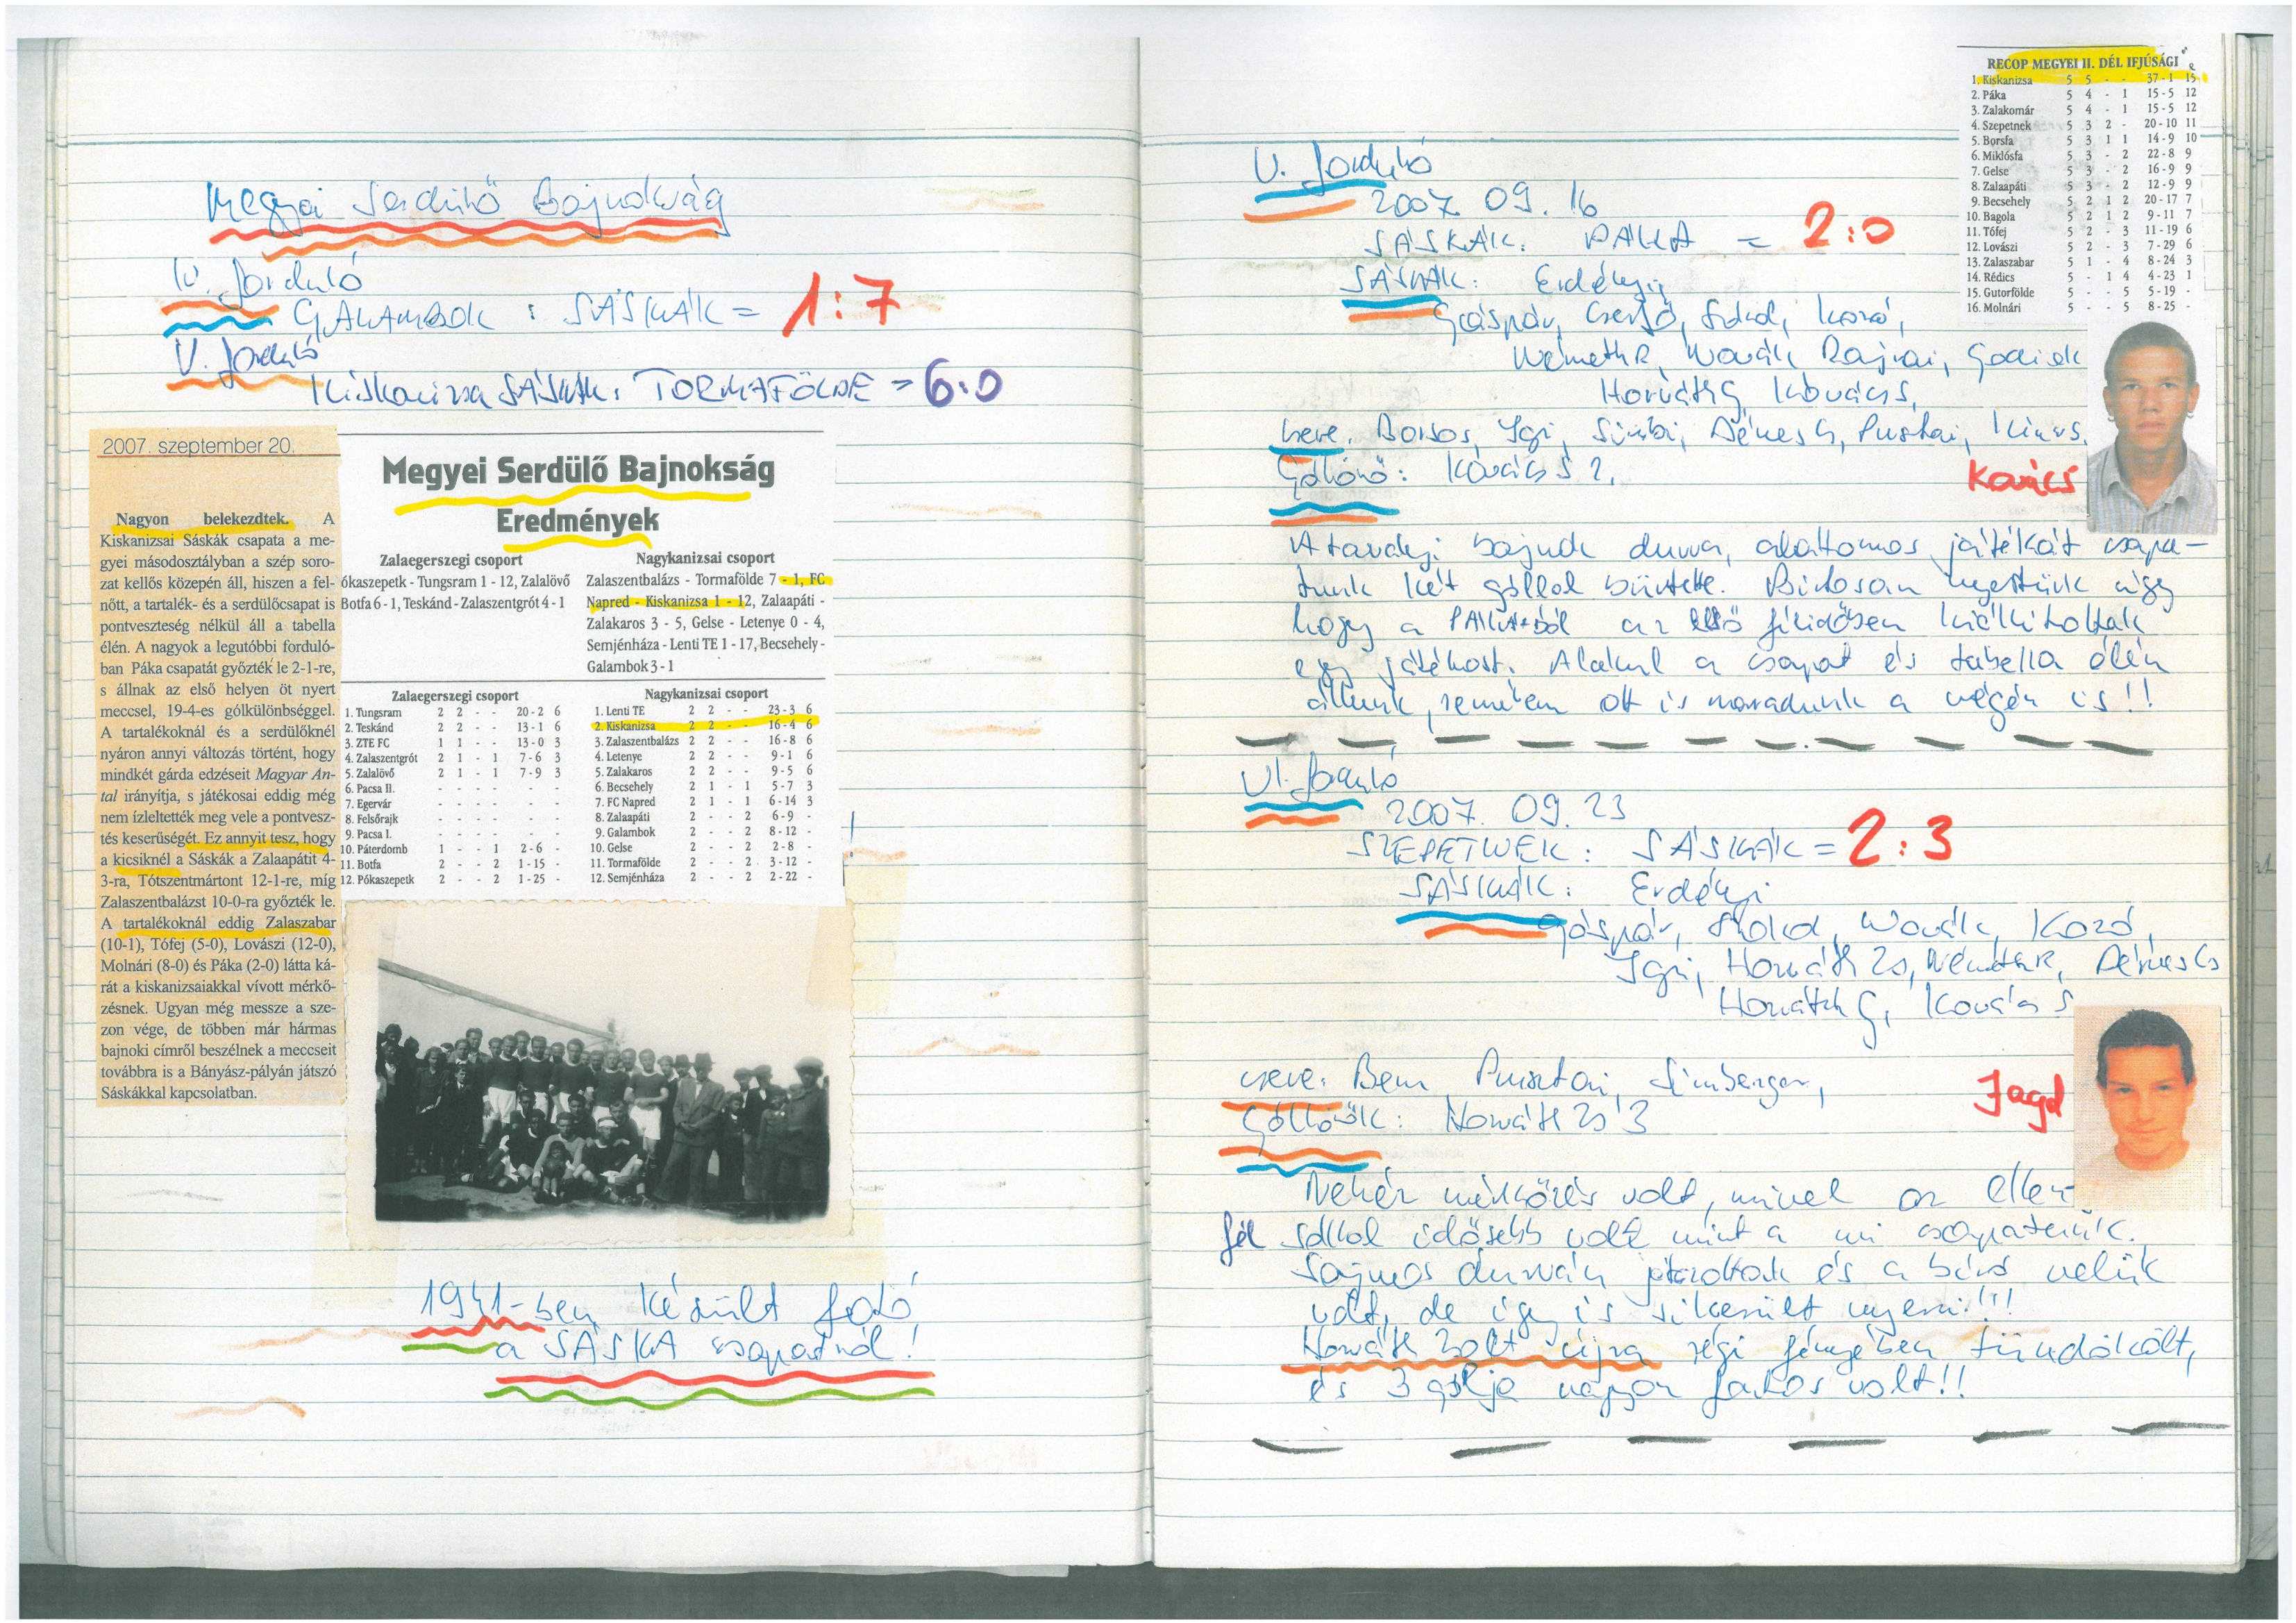 Megyei Serdülő Bajnokság
IV. forduló
GALAMBOK : SÁSKÁK = 1:7
V. forduló
Kiskanizsa SÁSKÁK : TORMAFÖLDE = 6:0
2007. szeptember 20.
Nagyon belekezdtek. A
Kiskanizsai Sáskák csapata a me-
gyei másodosztályban a szép soro-
zat kellős közepén áll, hiszen a fel-
nőtt, a tartalék- és a serdülőcsapat is
pontveszteség nélkül áll a tabella
élén. A nagyok a legutóbbi forduló-
ban Páka csapatát győzték le 2-1-re,
s állnak az első helyen öt nyert
meccsel, 19-4-es gólkülönbséggel.
A tartalékoknál és a serdülőknél
nyáron annyi változás történt, hogy
mindkét gárda edzéseit Magyar An-
tal irányítja, s játékosai eddig még
nem ízleltették meg vele a pontvesz-
tés keserűségét. Ez annyit tesz, hogy
a kicsiknél a Sáskák a Zalaapátit 4-
3-ra, Tótszentmártont 12-1-re, míg
Zalaszentbalázst 10-0-ra győzték le.
A tartalékoknál eddig Zalaszabar
(10-1), Tófej (5-0), Lovászi (12-0),
Molnári (8-0) és Páka (2-0) látta ká-
rát a kiskanizsaiakkal vívott mérkő-
zésnek. Ugyan még messze a sze-
zon vége, de többen már hármas
bajnoki címről beszélnek a meccseit
továbbra is a Bányász-pályán játszó
Sáskákkal kapcsolatban.
Megyei Serdülő Bajnokság
Eredmények
Zalaegerszegi csoport
ókaszepetk - Tungsram 1 - 12, Zalalövő
Botfa 6 - 1, Teskánd - Zalaszentgrót 4 - 1
Nagykanizsai csoport
Zalaszentbalázs - Tormafölde 7 - 1, FC
Napred - Kiskanizsa 1 - 12, Zalaapáti -
Zalakaros 3 - 5, Gelse - Letenye 0 - 4,
Semjénháza - Lenti TE 1 - 17, Becsehely -
Galambok 3 - 1
Zalaegerszegi csoport
1. Tungsram 2 2 - - 20-2 6
2. Teskánd 2 2 - - 13-1 6
3. ZTE FC 1 1 - - 13-0 3
4. Zalaszentgrót 2 1 - 1 7-6 3
5. Zalalövő 2 1 - 1 7-9 3
6. Pacsa II. - - - - - -
7. Egervár - - - - - -
8. Felsőrajk - - - - - -
9. Pacsa I. - - - - - -
10. Páterdomb 1 - - 1 2-6 -
11. Botfa 2 - - 2 1-15 -
12. Pókaszepetk 2 - - 2 1-25 -
Nagykanizsai csoport
1. Lenti TE 2 2 - - 23-3 6
2. Kiskanizsa 2 2 - - 16-4 6
3. Zalaszentbalázs 2 2 - - 16-8 6
4. Letenye 2 2 - - 9-1 6
5. Zalakaros 2 2 - - 9-5 6
6. Becsehely 2 1 - 1 5-7 3
7. FC Napred 2 1 - 1 6-14 3
8. Zalaapáti 2 - - 2 6-9 -
9. Galambok 2 - - 2 8-12 -
10. Gelse 2 - - 2 2-8 -
11. Tormafölde 2 - - 2 3-12 -
12. Semjénháza 2 - - 2 2-22 -
1941-ben készült fotó
a SÁSKA csapatról!
RECOP MEGYEI II. DÉL IFJÚSÁGI
1. Kiskanizsa 5 5 - - 37-1 15
2. Páka 5 4 - 1 15-5 12
3. Zalakomár 5 4 - 1 15-5 12
4. Szepetnek 5 3 2 - 20-10 11
5. Borsfa 5 3 1 1 14-9 10
6. Miklósfa 5 3 - 2 22-8 9
7. Gelse 5 3 - 2 16-9 9
8. Zalaapáti 5 3 - 2 12-9 9
9. Becsehely 5 2 1 2 20-17 7
10. Bagola 5 2 1 2 9-11 7
11. Tófej 5 2 - 3 11-19 6
12. Lovászi 5 2 - 3 7-29 6
13. Zalaszabar 5 1 - 4 8-24 3
14. Rédics 5 - 1 4 4-23 1
15. Gutorfölde 5 - - 5 5-19 -
16. Molnári 5 - - 5 8-25 -
V. forduló
2007. 09. 16
SÁSKÁK : PÁKA = 2:0
SÁSKÁK: Erdélyi
Gáspár, Cserjő, Sokol, Kozó,
Németh R, Novák Rajnai, Godiek
Horváth G, Kovács,
csere: Borsos, Igi, Simbi, Dénes G, Pusztai, Kiars.
Góllövő: Kovács S 2,
Kovács
A tavalyi bajnok durva, alattomos játékát csapa-
tunk két góllal büntette. Biztosan nyertünk úgy
hogy a PÁKA-ból az első félidőben kiállítottak
egy játékost. Alakul a csapat és tabella élén
állunk, remélem ott is maradunk a végén is!!
VI. forduló
2007. 09. 23
SZEPETNEK : SÁSKÁK = 2:3
SÁSKÁK: Erdélyi
Gáspár, Sokol, Novák, Kozó,
Igi, Horváth Zs, Németh R, Dénes G
Horváth G, Kovács S
csere: Bem Pusztai, Simberger,
Góllövők: Horváth Zs 3
Jagd
Nehéz mérkőzés volt, mivel az ellen-
fél sokkal idősebb volt mint a mi csapatunk.
Sajnos durván játszottak és a bíró velük
volt, de így is sikerült nyerni!!!
Horváth Zsolt újra régi fényében tündökölt,
és 3 gólja nagyon fontos volt!!